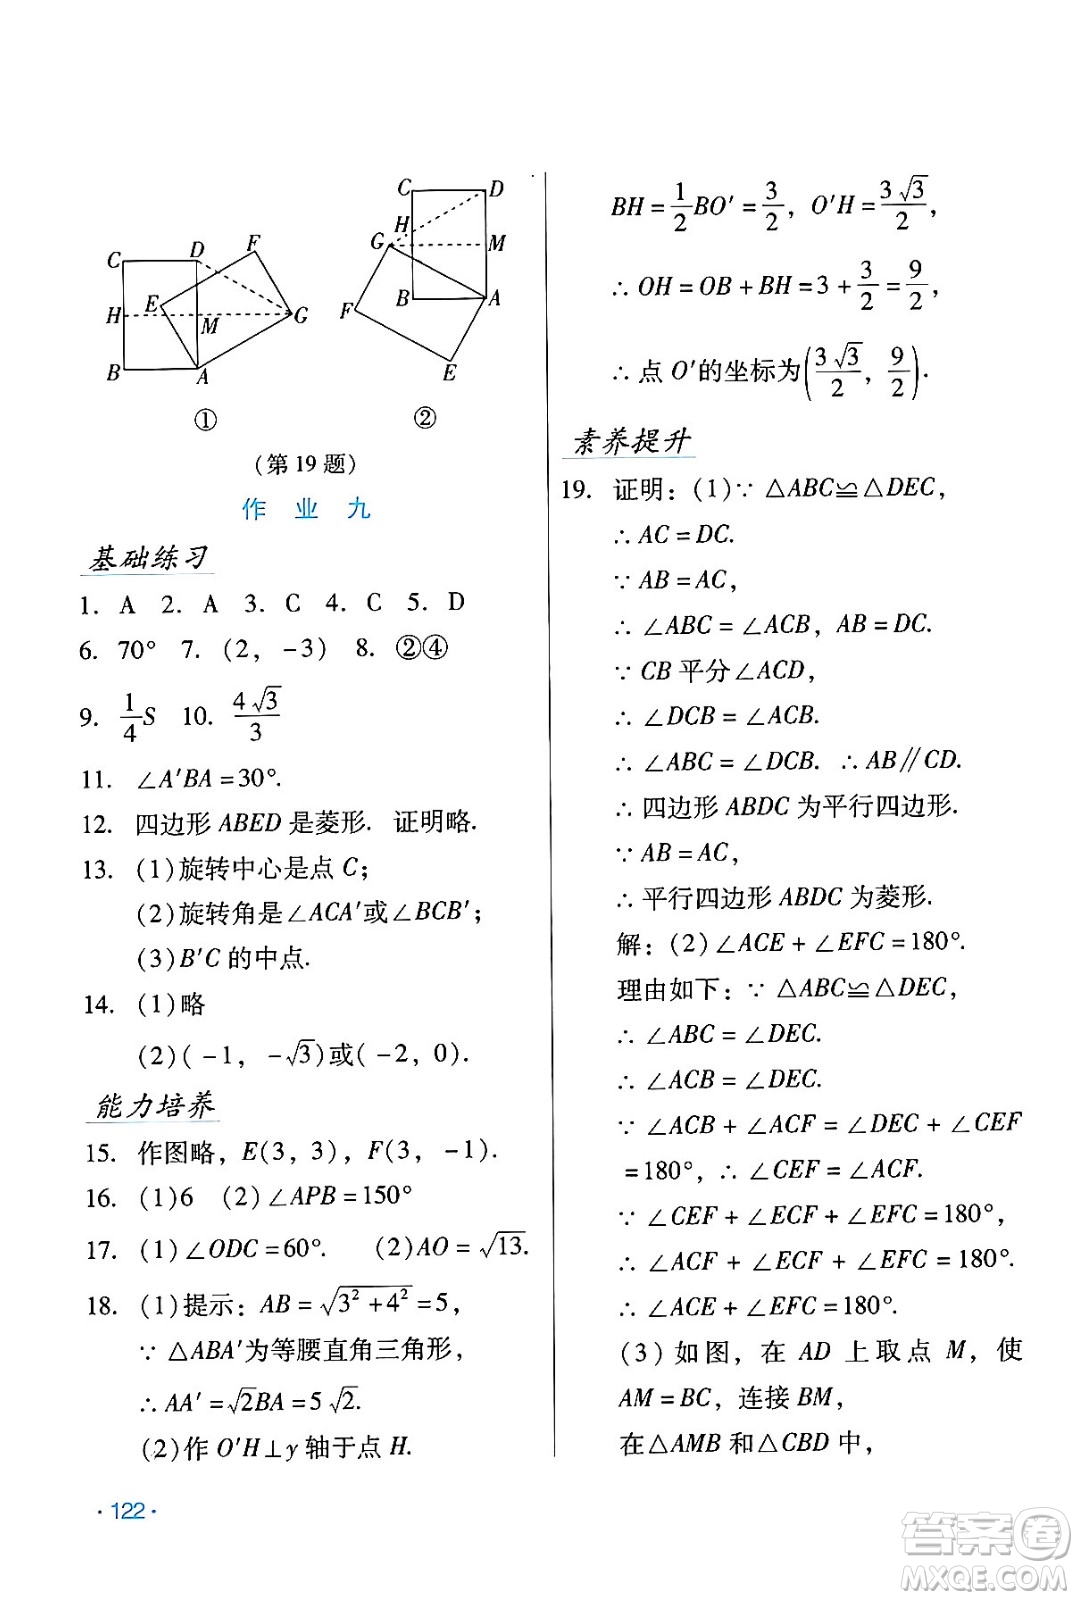 C D F
H E M G
B A
①
C D
H
G M
B A
F
E
②
(第 19 题)
作 业 九
基础练习
1. A 2. A 3. C 4. C 5. D
6. 70° 7. (2, -3) 8. ②④
9. 1/4 S 10. 4√3/3
11. ∠A′BA=30°.
12. 四边形 ABED 是菱形. 证明略.
13. (1)旋转中心是点 C;
(2)旋转角是∠ACA′或∠BCB′;
(3)B′C 的中点.
14. (1)略
(2)(-1, -√3)或(-2, 0).
能力培养
15. 作图略, E(3, 3), F(3, -1).
16. (1)6 (2)∠APB=150°
17. (1)∠ODC=60°. (2)AO=√13.
18. (1)提示: AB=√(3²+4²)=5,
∵ △ABA′为等腰直角三角形,
∴ AA′=√2BA=5√2.
(2)作 O′H⊥y 轴于点 H.
·122·
BH=1/2 BO′=3/2, O′H=3√3/2,
∴ OH=OB+BH=3+3/2=9/2,
∴ 点 O′的坐标为(3√3/2, 9/2).
素养提升
19. 证明: (1)∵ △ABC≌△DEC,
∴ AC=DC.
∵ AB=AC,
∴ ∠ABC=∠ACB, AB=DC.
∵ CB 平分∠ACD,
∴ ∠DCB=∠ACB.
∴ ∠ABC=∠DCB. ∴ AB∥CD.
∴ 四边形 ABDC 为平行四边形.
∵ AB=AC,
∴ 平行四边形 ABDC 为菱形.
解: (2)∠ACE+∠EFC=180°.
理由如下: ∵ △ABC≌△DEC,
∴ ∠ABC=∠DEC.
∴ ∠ACB=∠DEC.
∵ ∠ACB+∠ACF=∠DEC+∠CEF
=180°, ∴ ∠CEF=∠ACF.
∵ ∠CEF+∠ECF+∠EFC=180°,
∴ ∠ACF+∠ECF+∠EFC=180°.
∴ ∠ACE+∠EFC=180°.
(3)如图, 在 AD 上取点 M, 使
AM=BC, 连接 BM,
在△AMB 和△CBD 中,
答案圈
MXQE.COM